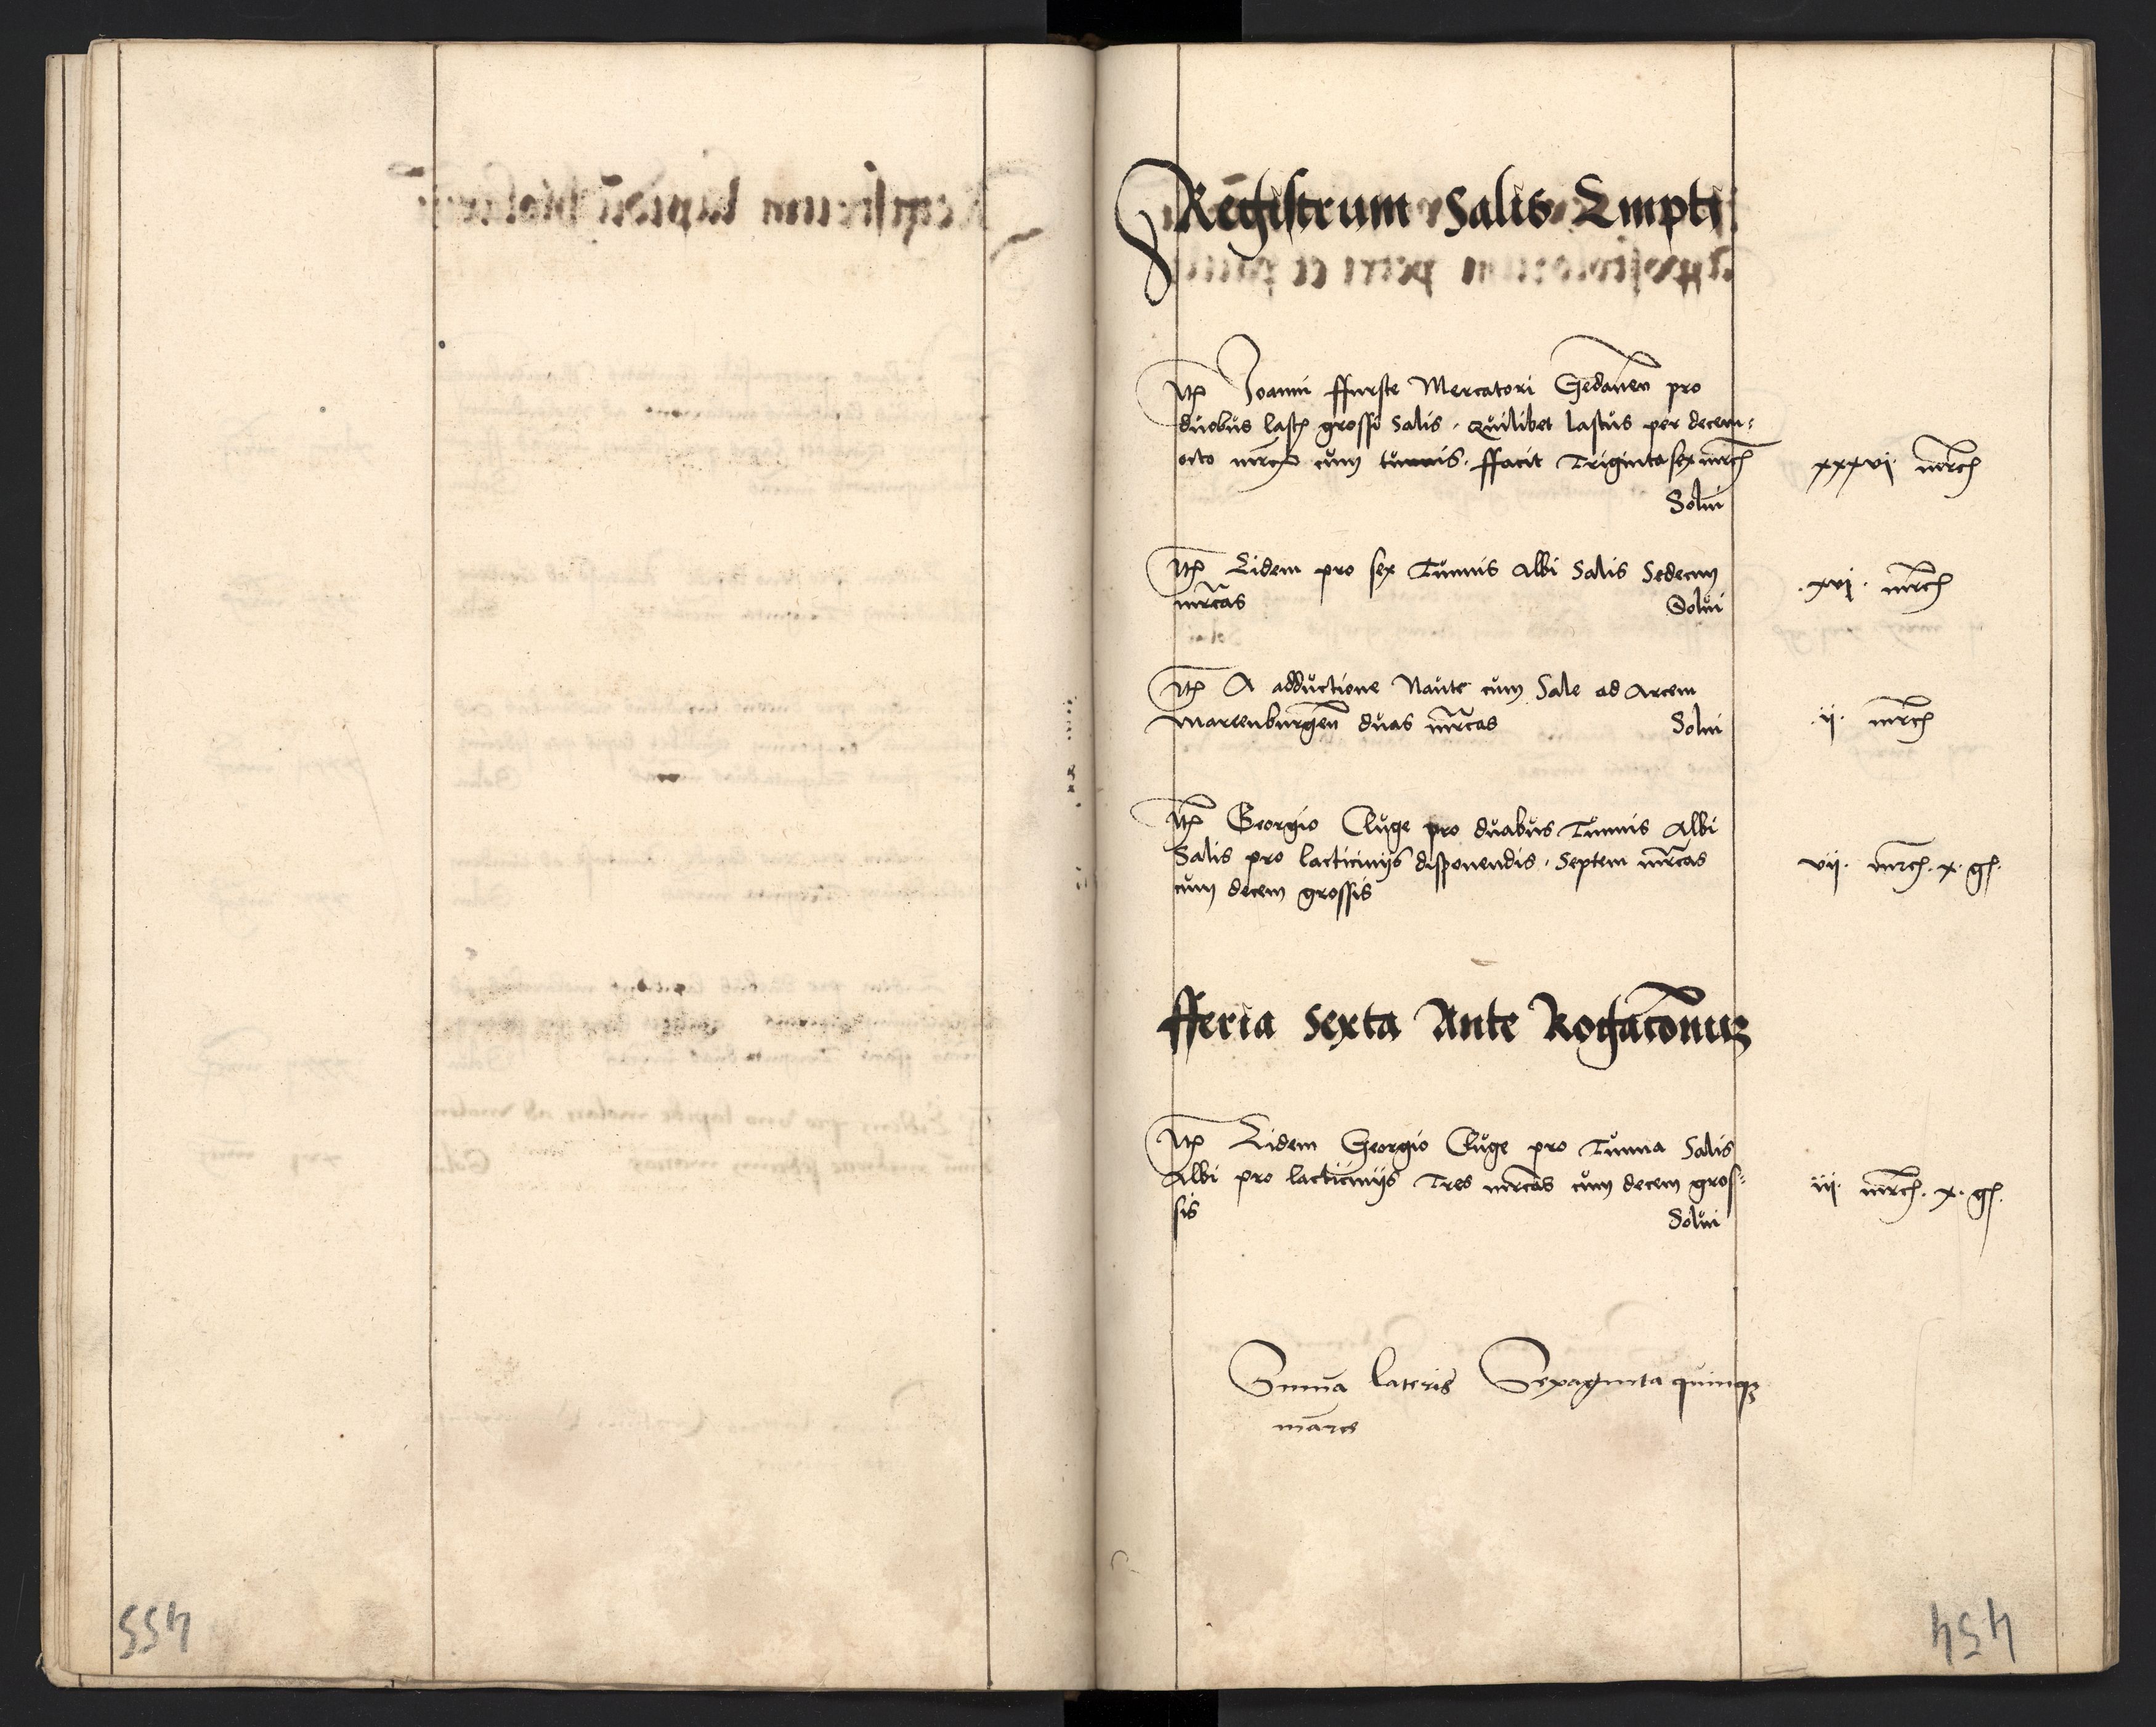 Registrum Salis Empti
Itm Joanni ffurste Mercatori Gedanen pro
duobus last grossi Salis. quilibet lastus per decem-
octo mrc cum tunnis. ffacit Trigintasex mrc xxxvi mrc
Solui
Itm Eidem pro sex Tunnis Albi Salis Sedecim .xvi. mrc
mrcas Solui
Itm A adductione Naute cum Sale ad Arcem
Marienburgen duas mrcas Solui .ij. mrc
Itm Georgio Cluge pro duabus Tunnis Albi
Salis pro lacticinijs disponendis. Septem mrcas vij. mrc. x. gs.
cum decem grossis
fferia Sexta Ante Rogaconuz
Itm Eidem Georgio Cluge pro Tunna Salis
Albi pro lacticinijs Tres mrcas cum decem gros- iij. mrc. x. gs.
sis Solui
Suma lateris Sexaginta quinqz
marcs
455
454